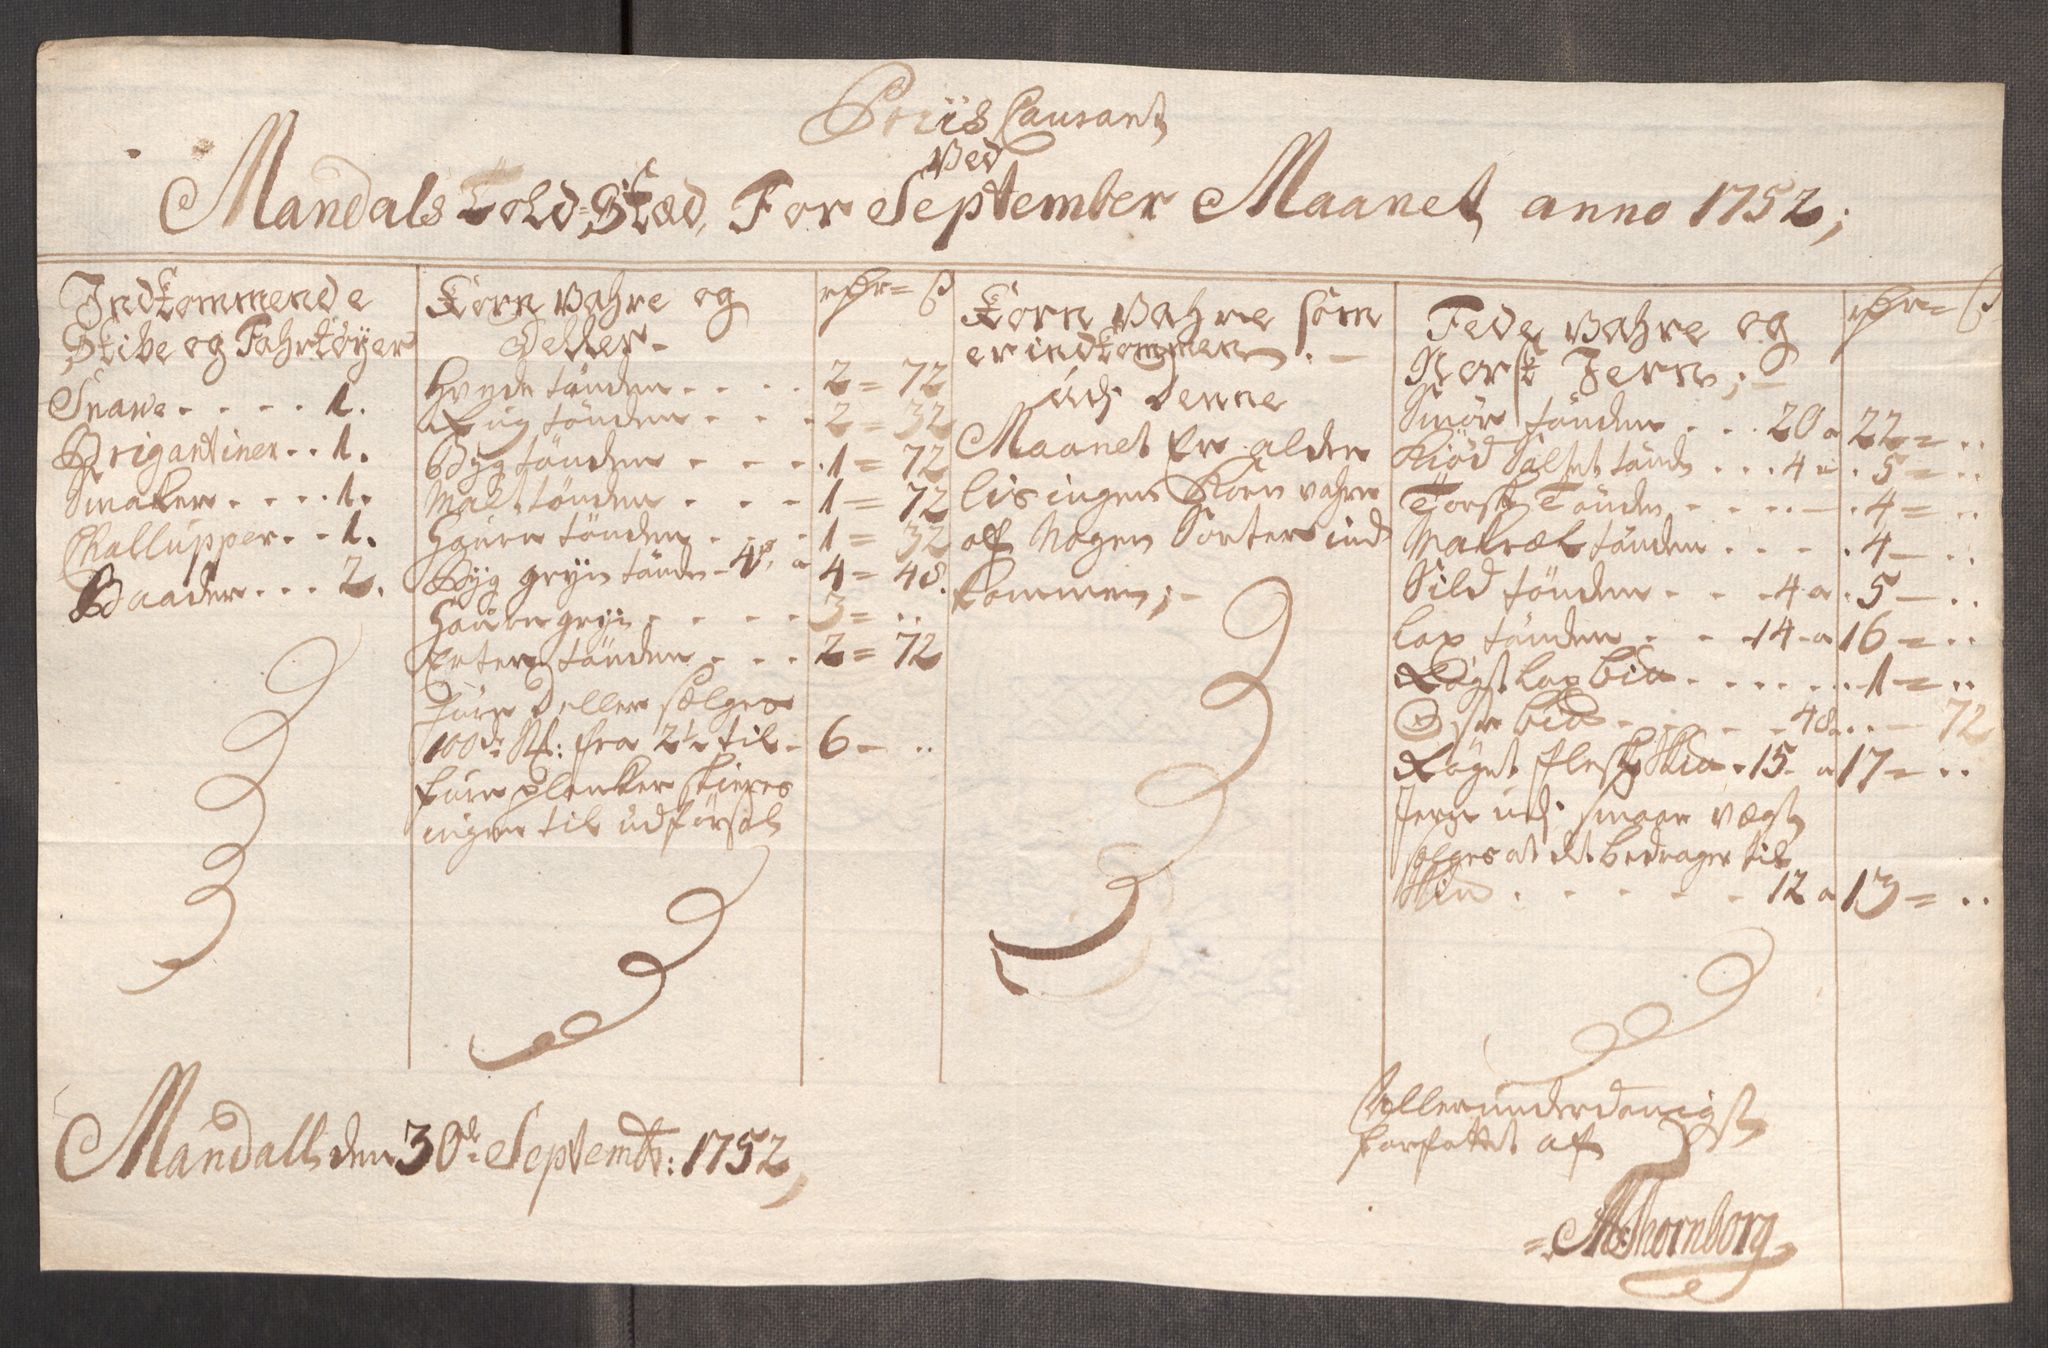 Priis Courant
Ved
Mandals Told-Stæd, For September Maanet anno 1752;
Indkommende
Skibe og Fahrtøyer
Snawe . . . . 1.
Brigantiner . . 1.
Smaker . . . . 1.
Challupper . . 1.
Baader . . . 2.
Korn Vahre og
Deller -
rdr = ß
Hvede tönden . . . . 2 = 72
Rug tönden . . . 2 = 32
Byg tönden - - - . 1 = 72
Malt tönden . . - 1 = 72
Haurn tönden . . . 1 = 32
Byg gryn tönde - 4 a 4 = 48.
Haurn gryn . . . . 3 = ..
Erter tönden . . . 2 = 72
Furu Deller sælges
100de st: fra 2½ til - 6 - ..
Furu planker skieres
ingen til udførsel
Korn Vahre som
er indkommen . -
Udj Denne
Maanet Er alde
lis ingen Korn vahre
af Nogen Sorter ind
kommen; -
Fede Vahre og
Norsk Jern; -
rdr = ß
Smör tönden . . . 20 a 22 = ..
Kiød Saltet tönde . . . 4 a . 5 = ..
Torsk Tönden - - . . - . 4 = ..
Makræl tönden . . . . 4 - ..
Sild tönden - - - 4 a . 5 - ..
Lax tönden . - - 14 - a 16 = ..
Røgt Lax bid . . . . . . 1 = ..
Oste bid . - - - - 48 a . . - 72
Røget flesk Skid . 15 - a 17 = ..
Jern udj smaae vægt
sælges at det bedrager til
Skid . . . . . 12 a 13 = ..
Mandall den 30de Septembr: 1752,
Allerunderdanigst
forfattet af
Thornborg